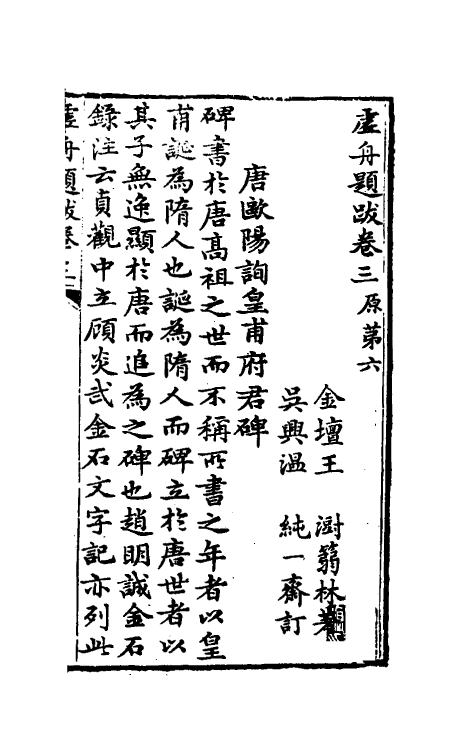 虛舟題跋卷三 原第六
金壇王　澍篛林著
吳興溫　純一齋訂
唐歐陽詢皇甫府君碑
碑書於唐高祖之世而不稱所書之年者以皇
甫誕為隋人也誕為隋人而碑立於唐世者以
其子無逸顯於唐而追為之碑也趙明誠金石
錄注云貞觀中立顧炎武金石文字記亦列此
虛舟題跋卷三